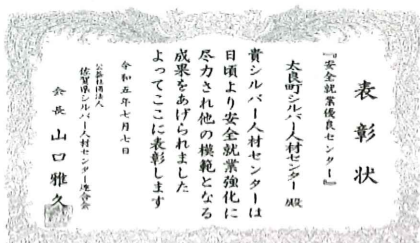 表彰状
『安全就業優良センター』
太良町シルバー人材センター 殿
貴シルバー人材センターは
日頃より安全就業強化に
尽力され他の模範となる
成果をあげられました
よってここに表彰します
令和五年七月七日
公益社団法人
佐賀県シルバー人材センター連合会
会長 山口雅久